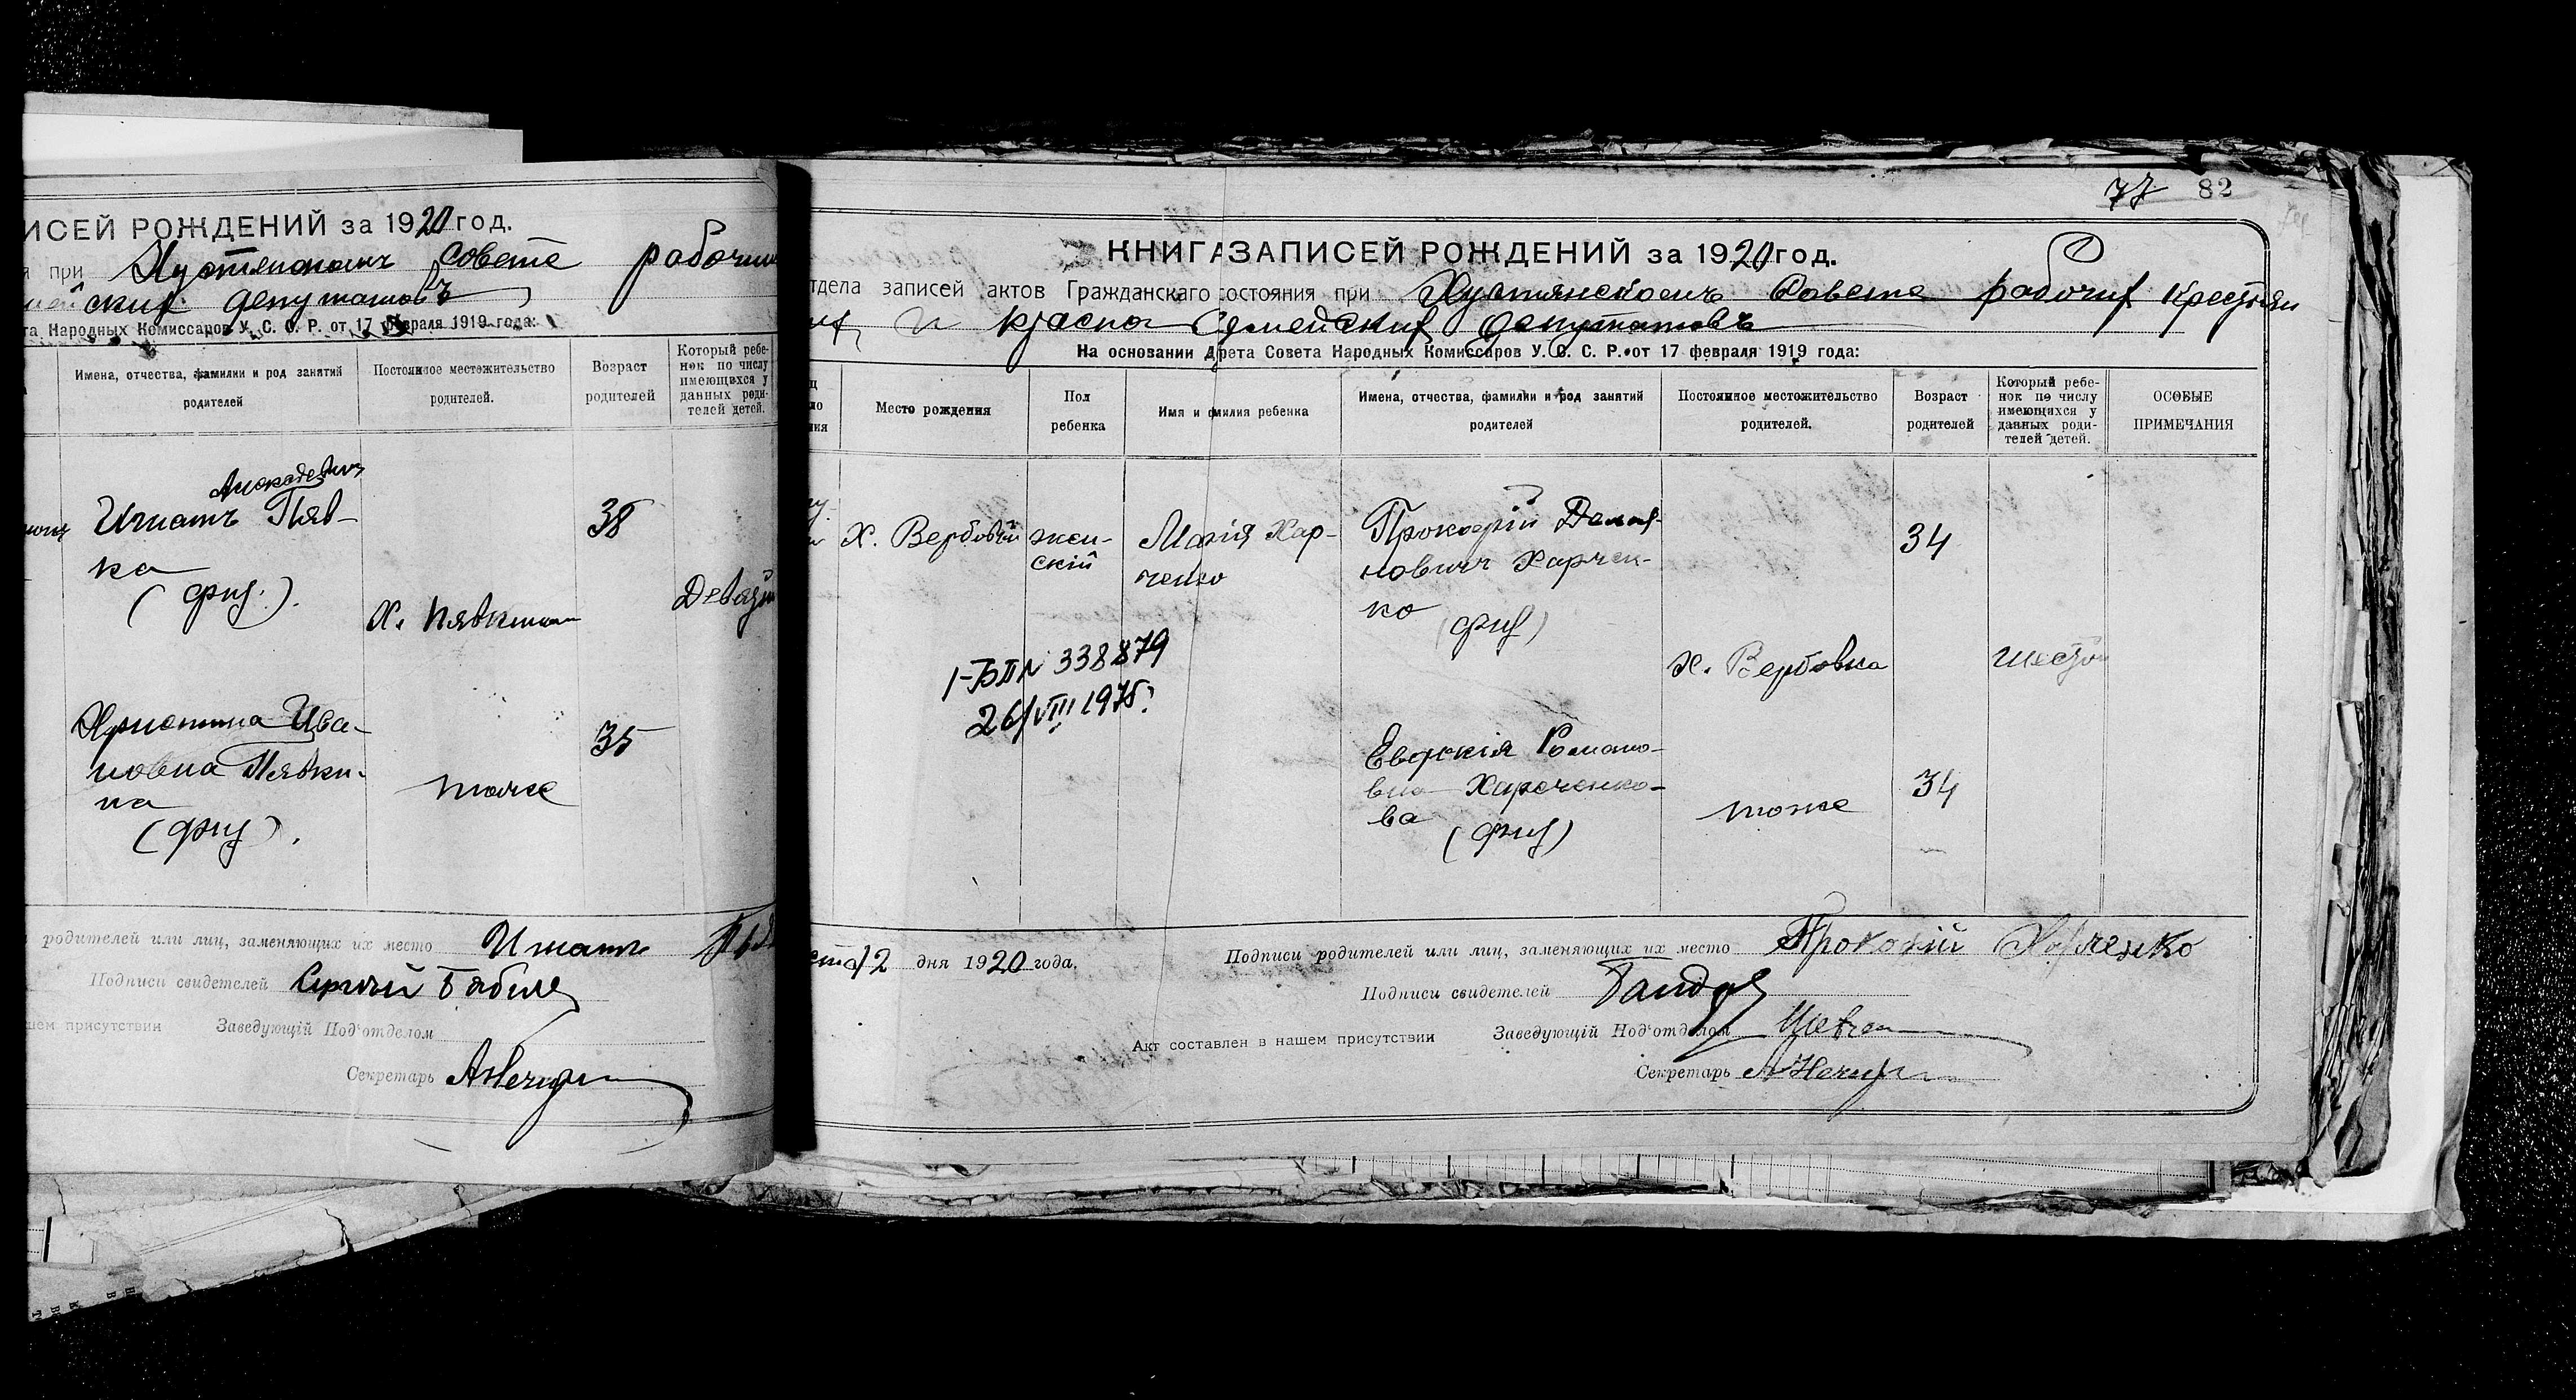 ИСЕЙ РОЖДЕНИЙ за 1920 год.
при Хустянскомъ Совете рабочих
ских депутатовъ
та Народных Комиссаров У. С. С. Р. от 17 февраля 1919 года:
Имена, отчества, фамилии и род занятий родителей
Постоянное местожительство родителей.
Возраст родителей
Который ребенок по числу имеющихся у данных родителей детей.
Игнатъ Пяв-
ка
38
Х.
Христина Ива-
новна Пявки-
на
35
тоже
родителей или лиц, заменяющих их место Игнатъ
Подписи свидетелей Сергей
шем присутствии Заведующій Под'отделом
Секретарь
77 82
КНИГА ЗАПИСЕЙ РОЖДЕНИЙ за 1920 год.
тдела записей актов Гражданскаго состояния при Хустянскомъ Совете рабочих крестьян
и красно армейских депутатовъ
На основании Д рета Совета Народных Комиссаров У. С. С. Р. от 17 февраля 1919 года:
Место рождения
Пол ребенка
Имя и ф милия ребенка
Имена, отчества, фамилии и род занятий родителей
Постоянное местожительство родителей.
Возраст родителей
Который ребенок по числу имеющихся у данных родителей детей.
ОСОБЫЕ ПРИМЕЧАНИЯ
Х. Вербовый
жен-
скій
Марія Хар-
ченко
Прокофій
новичъ Харчен-
ко
34
1-БП № 338879
26/VIII 1975г.
х. Вербовка
шестой
Евфокія Романо-
вна Харченко-
ва
тоже
34
12 дня 1920 года.
Подписи родителей или лиц, заменяющих их место Прокофій Харченко
Подписи свидетелей
Акт составлен в нашем присутствии Заведующій Под'отделом
Секретарь